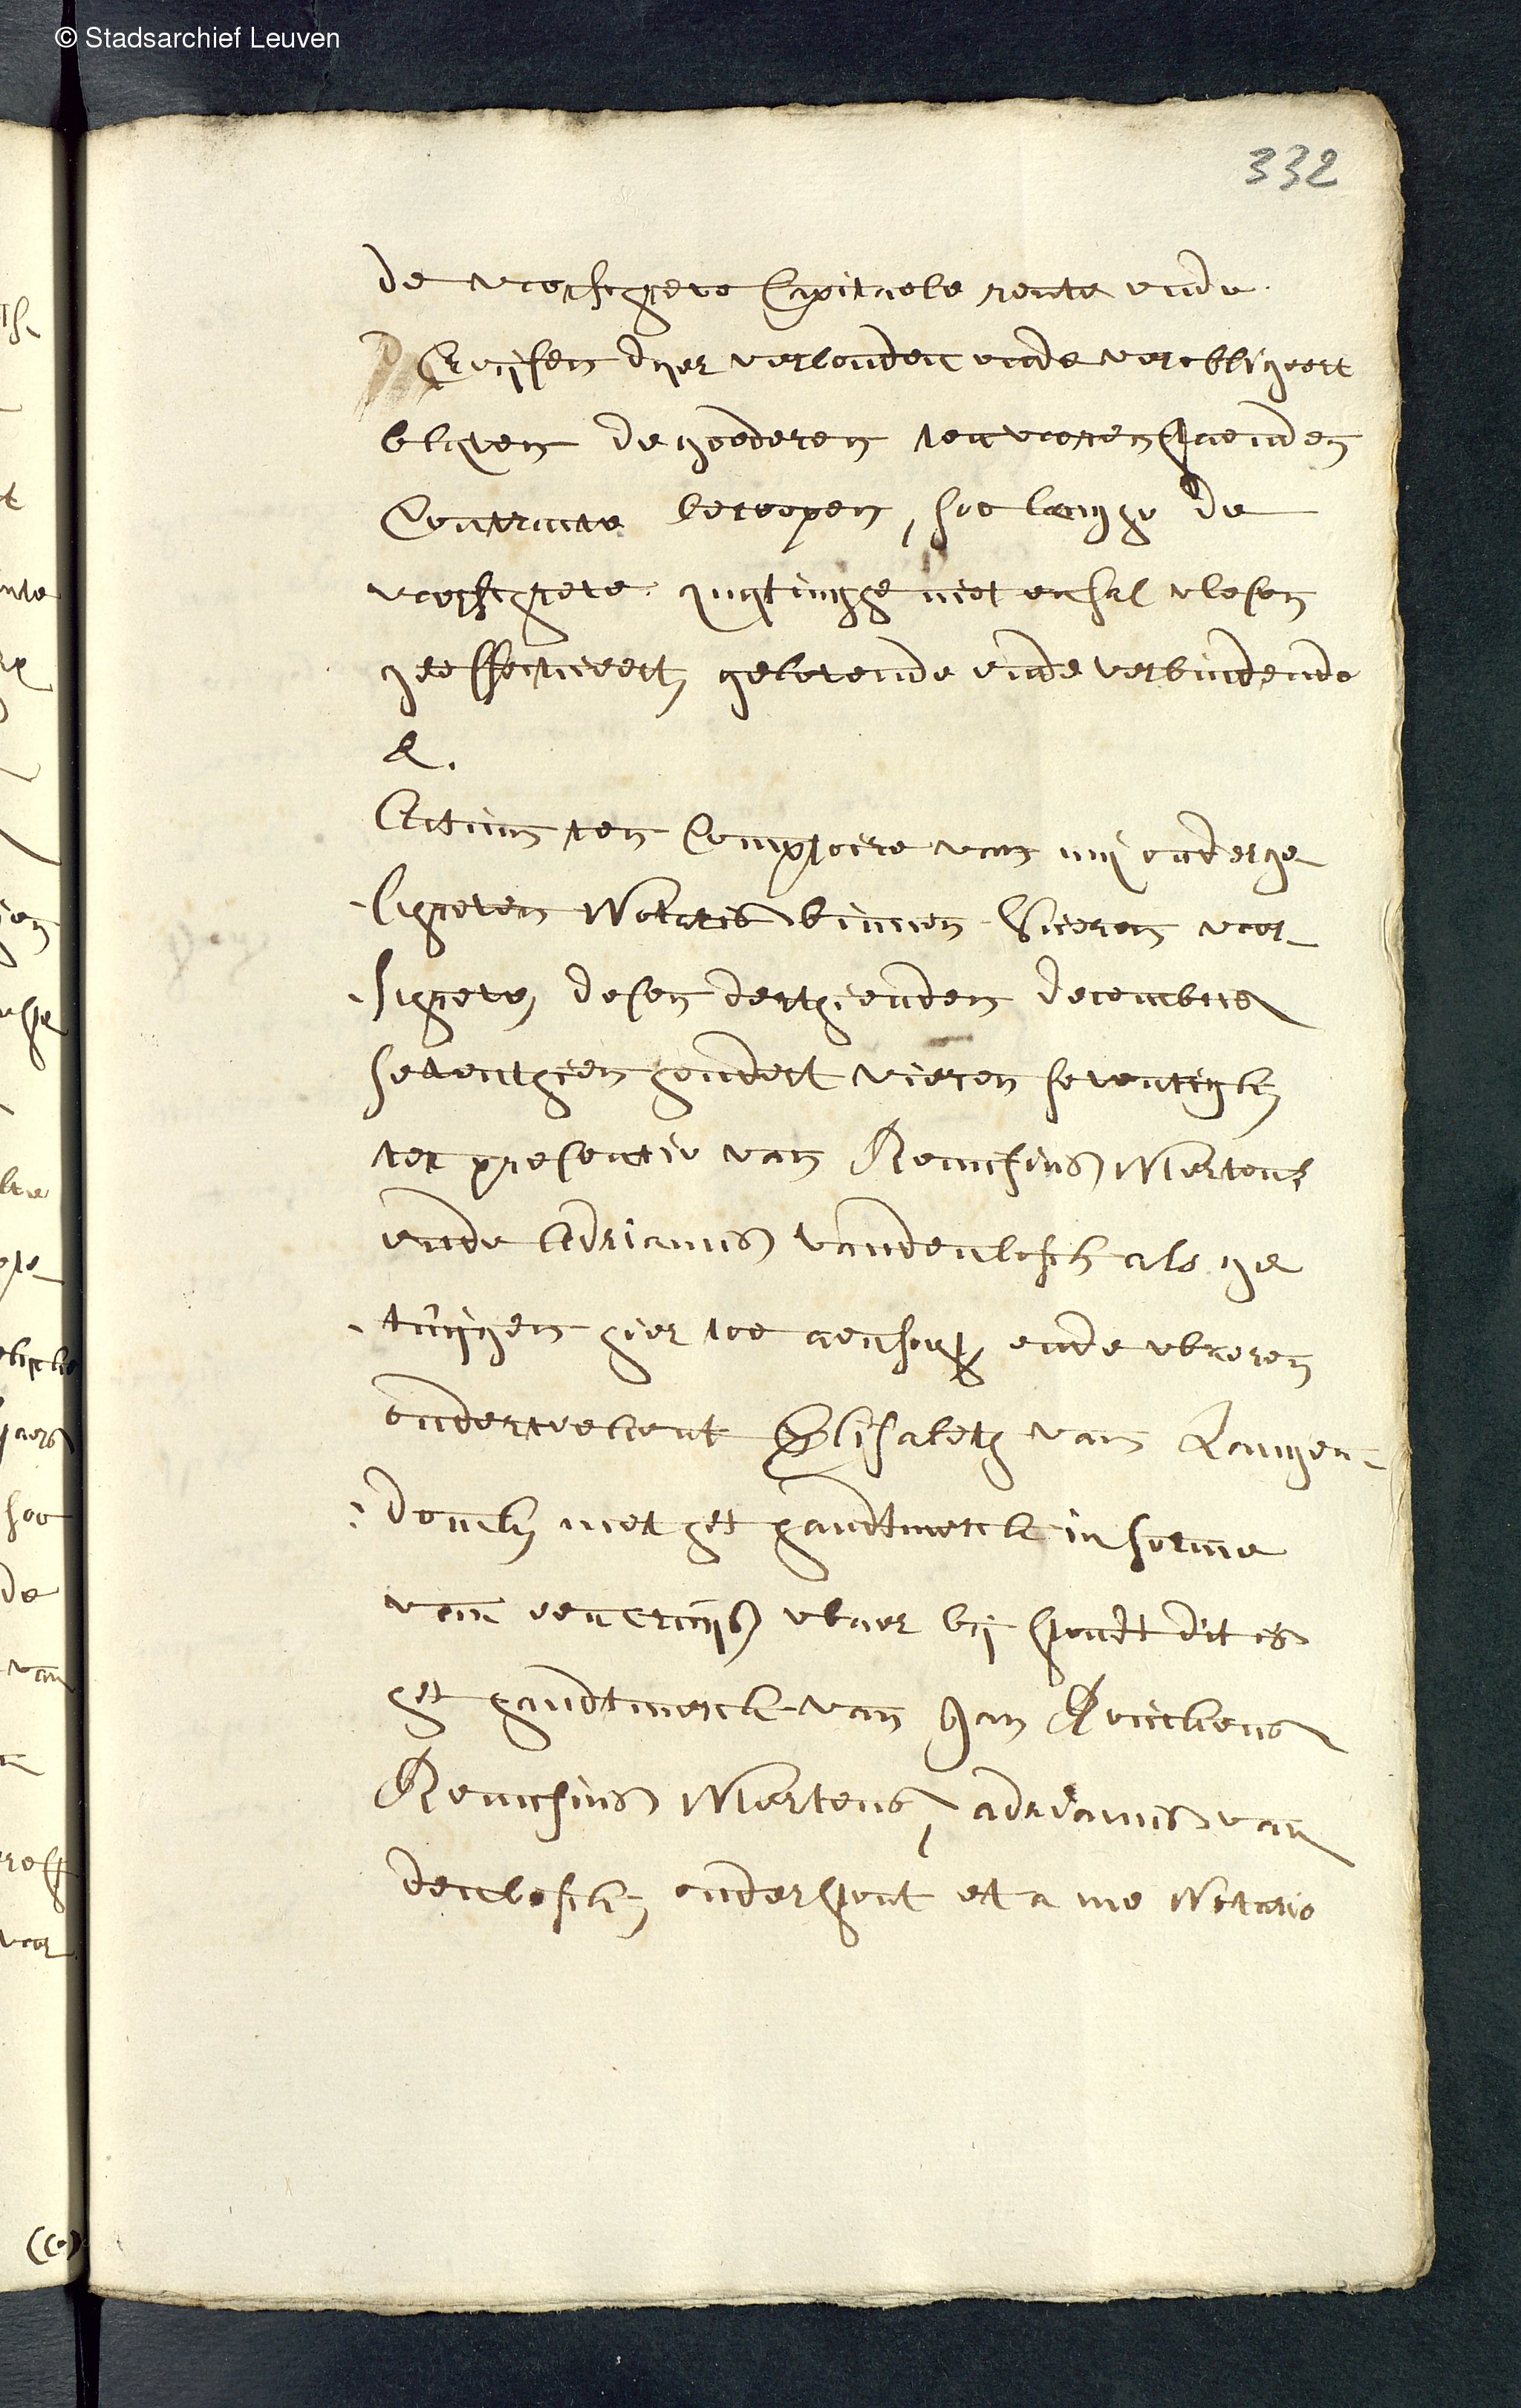 © Stadsarchief Leuven
332
de voorschreve Capitaele rente ende
Croijsen daer verbonden ende verobligeert
blijven de goederen ten voorenstaenden
Contracte beroepen, soo lange de
voorschreve quijtinge niet en sal wesen
geeffectueert, gelovende ende verbindende
&.
Actum ten Comptoire van mij onderge
schreven Notaris binnen voor
schreve, desen derthienden december
seventhien hondert vieren seventigh
ter presentie van Remigius Mertens
ende Adrianus vandenbosch als ge
tuijgen hier toe aensocht ende waeren
onderteekent Elisabeth van Langen
donck, met het handtmerck in forme
van een cruijs waer bij stondt dit is
het handtmerck van Jan
Remigius Mertens, adrianus van
denbosch, onderstont et a me Notario